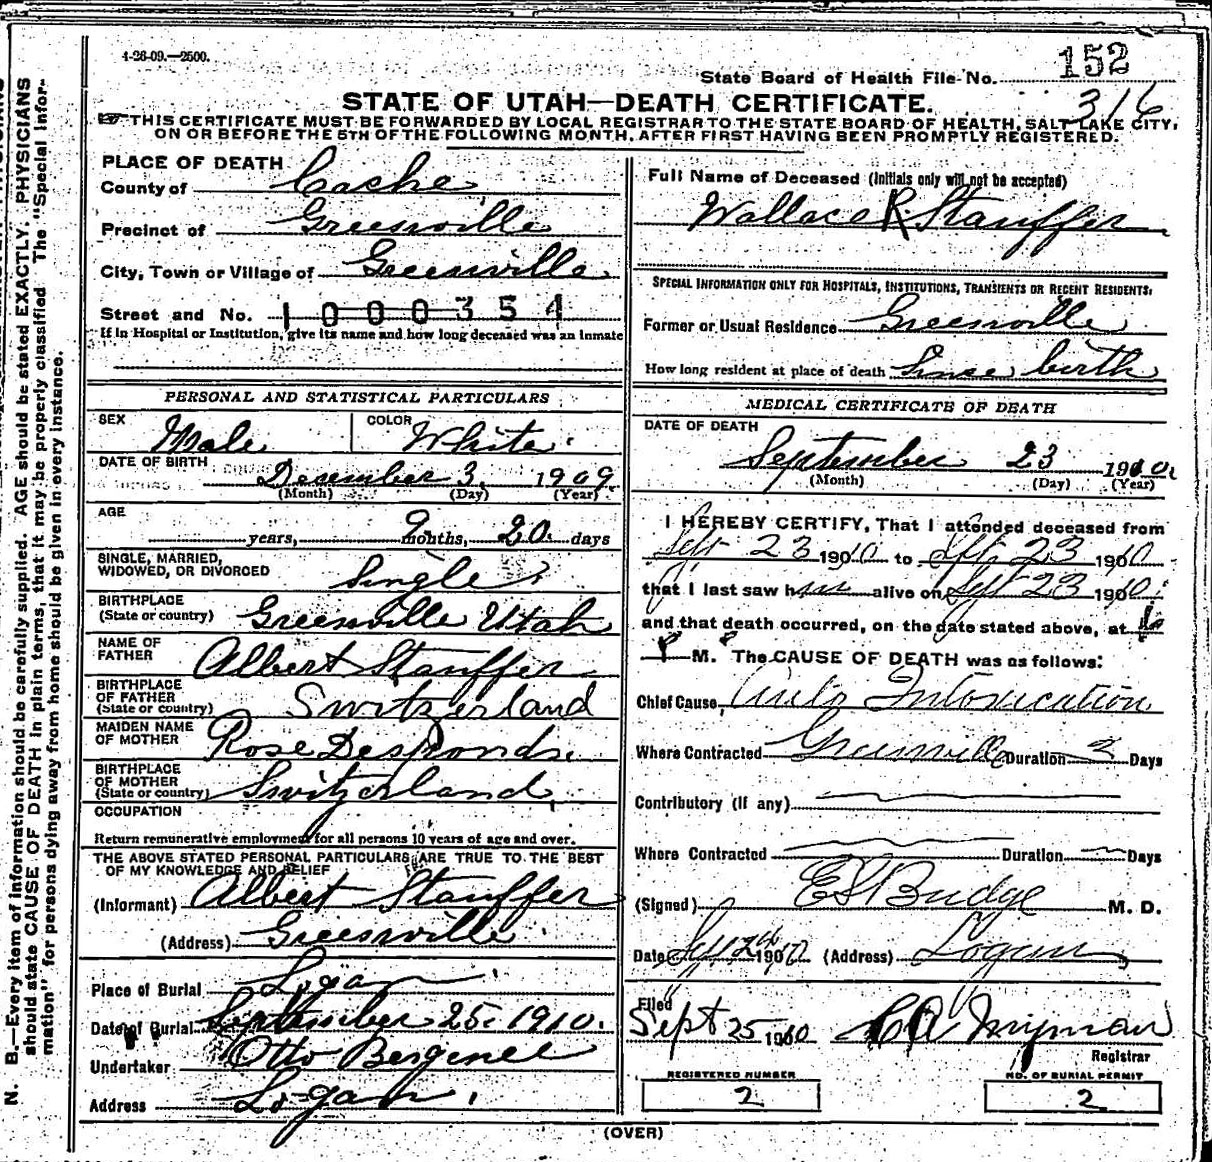 4-26-09.—2500.
152
State Board of Health File No.
316
STATE OF UTAH—DEATH CERTIFICATE.
THIS CERTIFICATE MUST BE FORWARDED BY LOCAL REGISTRAR TO THE STATE BOARD OF HEALTH, SALT LAKE CITY,
ON OR BEFORE THE 5TH OF THE FOLLOWING MONTH, AFTER FIRST HAVING BEEN PROMPTLY REGISTERED.
PLACE OF DEATH
County of Cache
Precinct of Greenville
City, Town or Village of Greenville
Street and No. 1000354
If in Hospital or Institution, give its name and how long deceased was an inmate
Full Name of Deceased (Initials only will not be accepted)
Wallace R Stauffer
SPECIAL INFORMATION ONLY FOR HOSPITALS, INSTITUTIONS, TRANSIENTS OR RECENT RESIDENTS:
Former or Usual Residence Greenville
How long resident at place of death Since birth
PERSONAL AND STATISTICAL PARTICULARS
SEX Male
COLOR White
DATE OF BIRTH December 3, 1909
(Month) (Day) (Year)
AGE
years, 9 months, 20 days
SINGLE, MARRIED,
WIDOWED, OR DIVORCED Single
BIRTHPLACE
(State or country) Greenville Utah
NAME OF
FATHER Albert Stauffer
BIRTHPLACE
OF FATHER
(State or country) Switzerland
MAIDEN NAME
OF MOTHER Rose Desponds.
BIRTHPLACE
OF MOTHER
(State or country) Switzerland
OCCUPATION
Return remunerative employment for all persons 10 years of age and over.
THE ABOVE STATED PERSONAL PARTICULARS ARE TRUE TO THE BEST
OF MY KNOWLEDGE AND BELIEF
(Informant) Albert Stauffer
(Address) Greenville
Place of Burial Logan
Date of Burial September 25, 1910.
Undertaker Otto
Address Logan
MEDICAL CERTIFICATE OF DEATH
DATE OF DEATH
September 23 1910
(Month) (Day) (Year)
I HEREBY CERTIFY, That I attended deceased from
Sept 23 1910 to Sept 23 1910
that I last saw him alive on Sept 23 1910
and that death occurred, on the date stated above, at
P M. The CAUSE OF DEATH was as follows:
Chief Cause, Auto Intoxication
Where Contracted Greenville Duration 2 Days
Contributory (if any)
Where Contracted Duration Days
(Signed) E S Budge M. D.
Date Sept 1910 (Address) Logan
Filed
Sept 25 1910
Registrar
REGISTERED NUMBER
2
NO. OF BURIAL PERMIT
2
(OVER)
N. B.—Every item of information should be carefully supplied. AGE should be stated EXACTLY. PHYSICIANS
should state CAUSE OF DEATH in plain terms, that it may be properly classified The "Special Infor-
mation" for persons dying away from home should be given in every instance.